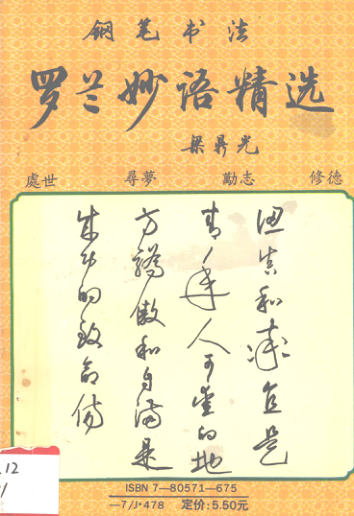 钢笔书法
罗兰妙语精选
梁昇光
處世 尋夢 勵志 修德
温真和诚恳是
青年人可爱的地
方骄傲和自满是
成功的致命伤
.12
ISBN 7—80571—675
—7/J·478 定价:5.50元